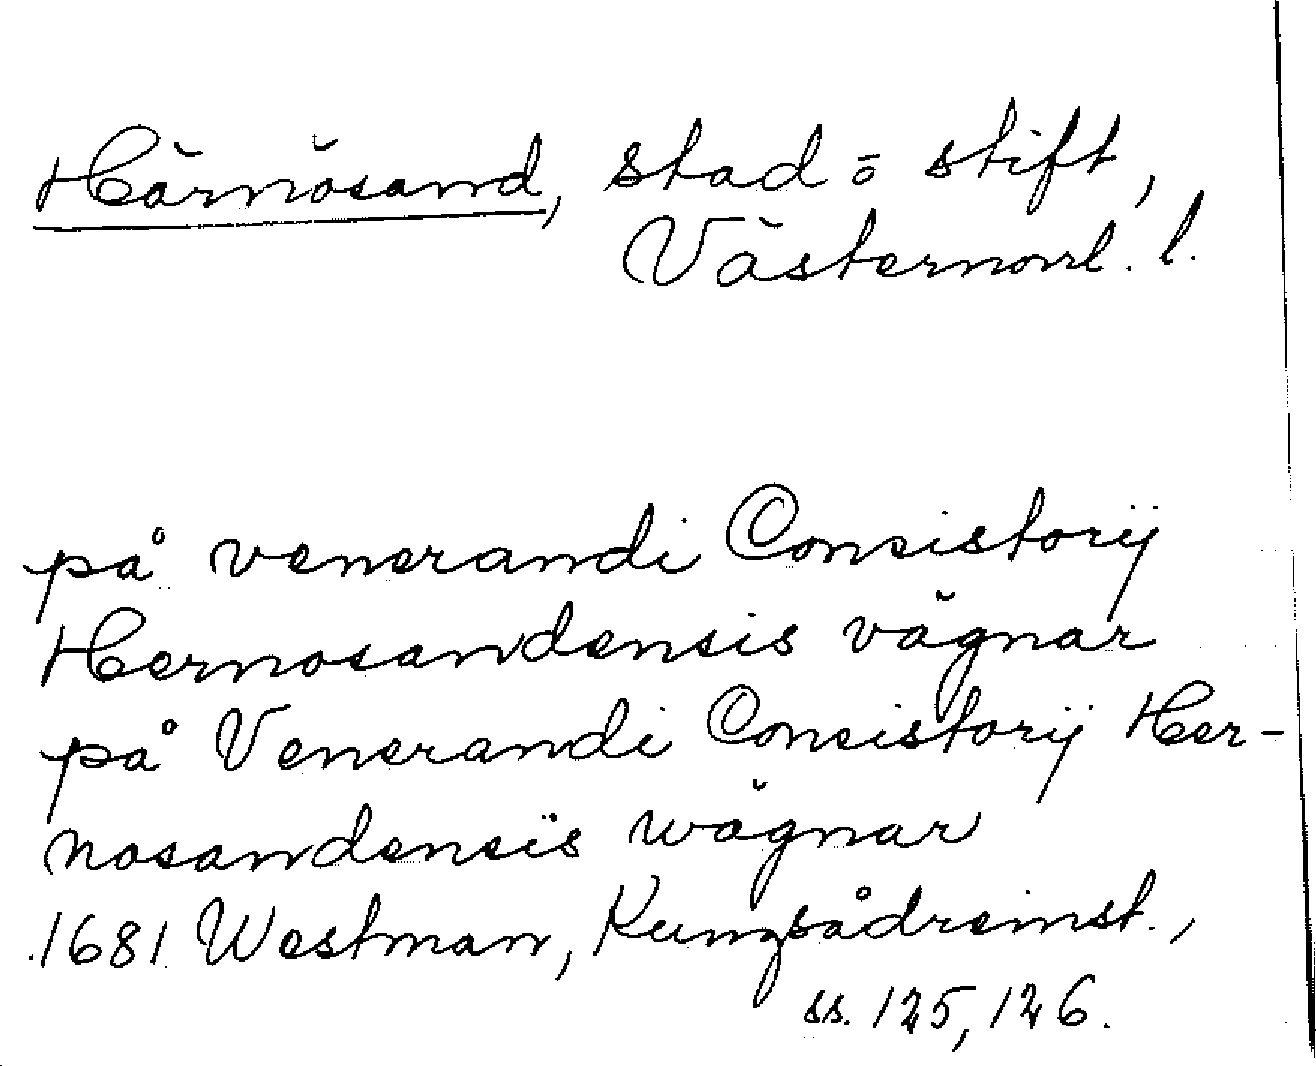 Härnösand, stad o stift,
Västernorrl. l.
på venerandi Consistorij
Hernosandensis vägnar
på Venerandi Consistorij Her-
nosandensis wägnar
1681 Westman, Kungsådreinst.,
ss. 125, 126.